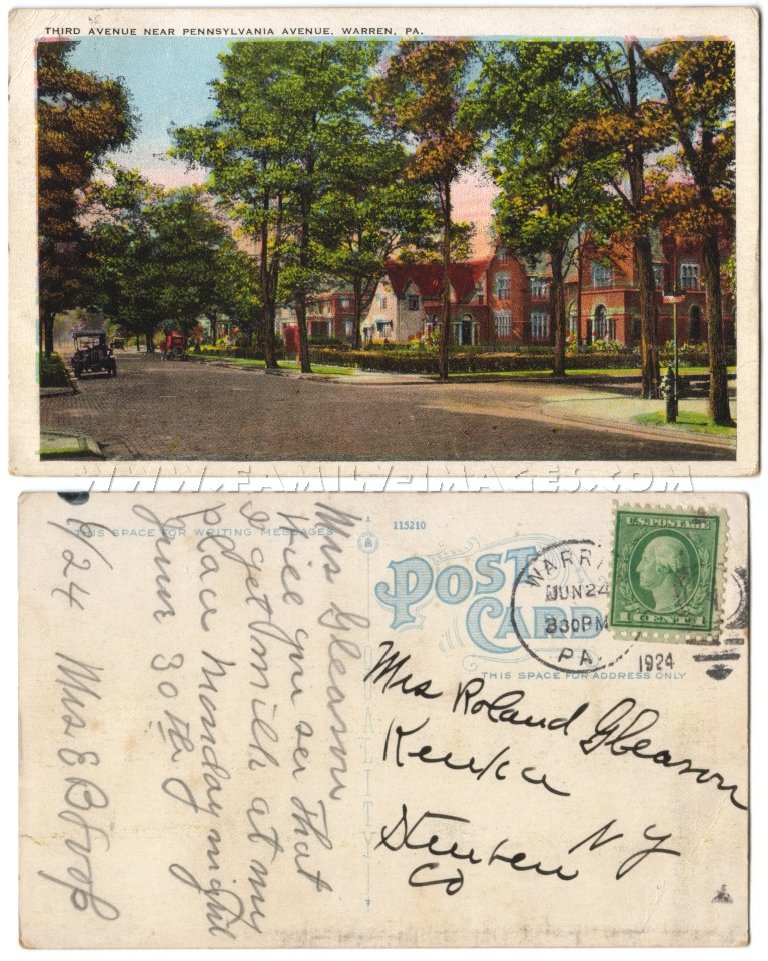 THIRD AVENUE NEAR PENNSYLVANIA AVENUE, WARREN, PA.
WWW.FAMILY-IMAGES.COM
THIS SPACE FOR WRITING MESSAGES
115210
POST
CARD
THIS SPACE FOR ADDRESS ONLY
WARR
JUN 24
330PM
PA.
1924
U.S.POSTAGE
1 CENT 1
QUALITY
Mrs Roland Gleason
Keuka
Steuben NY
Co
Mrs Gleason
Will you see that
I get milk at my
place Monday night
June 30th
6/24 Mrs E B